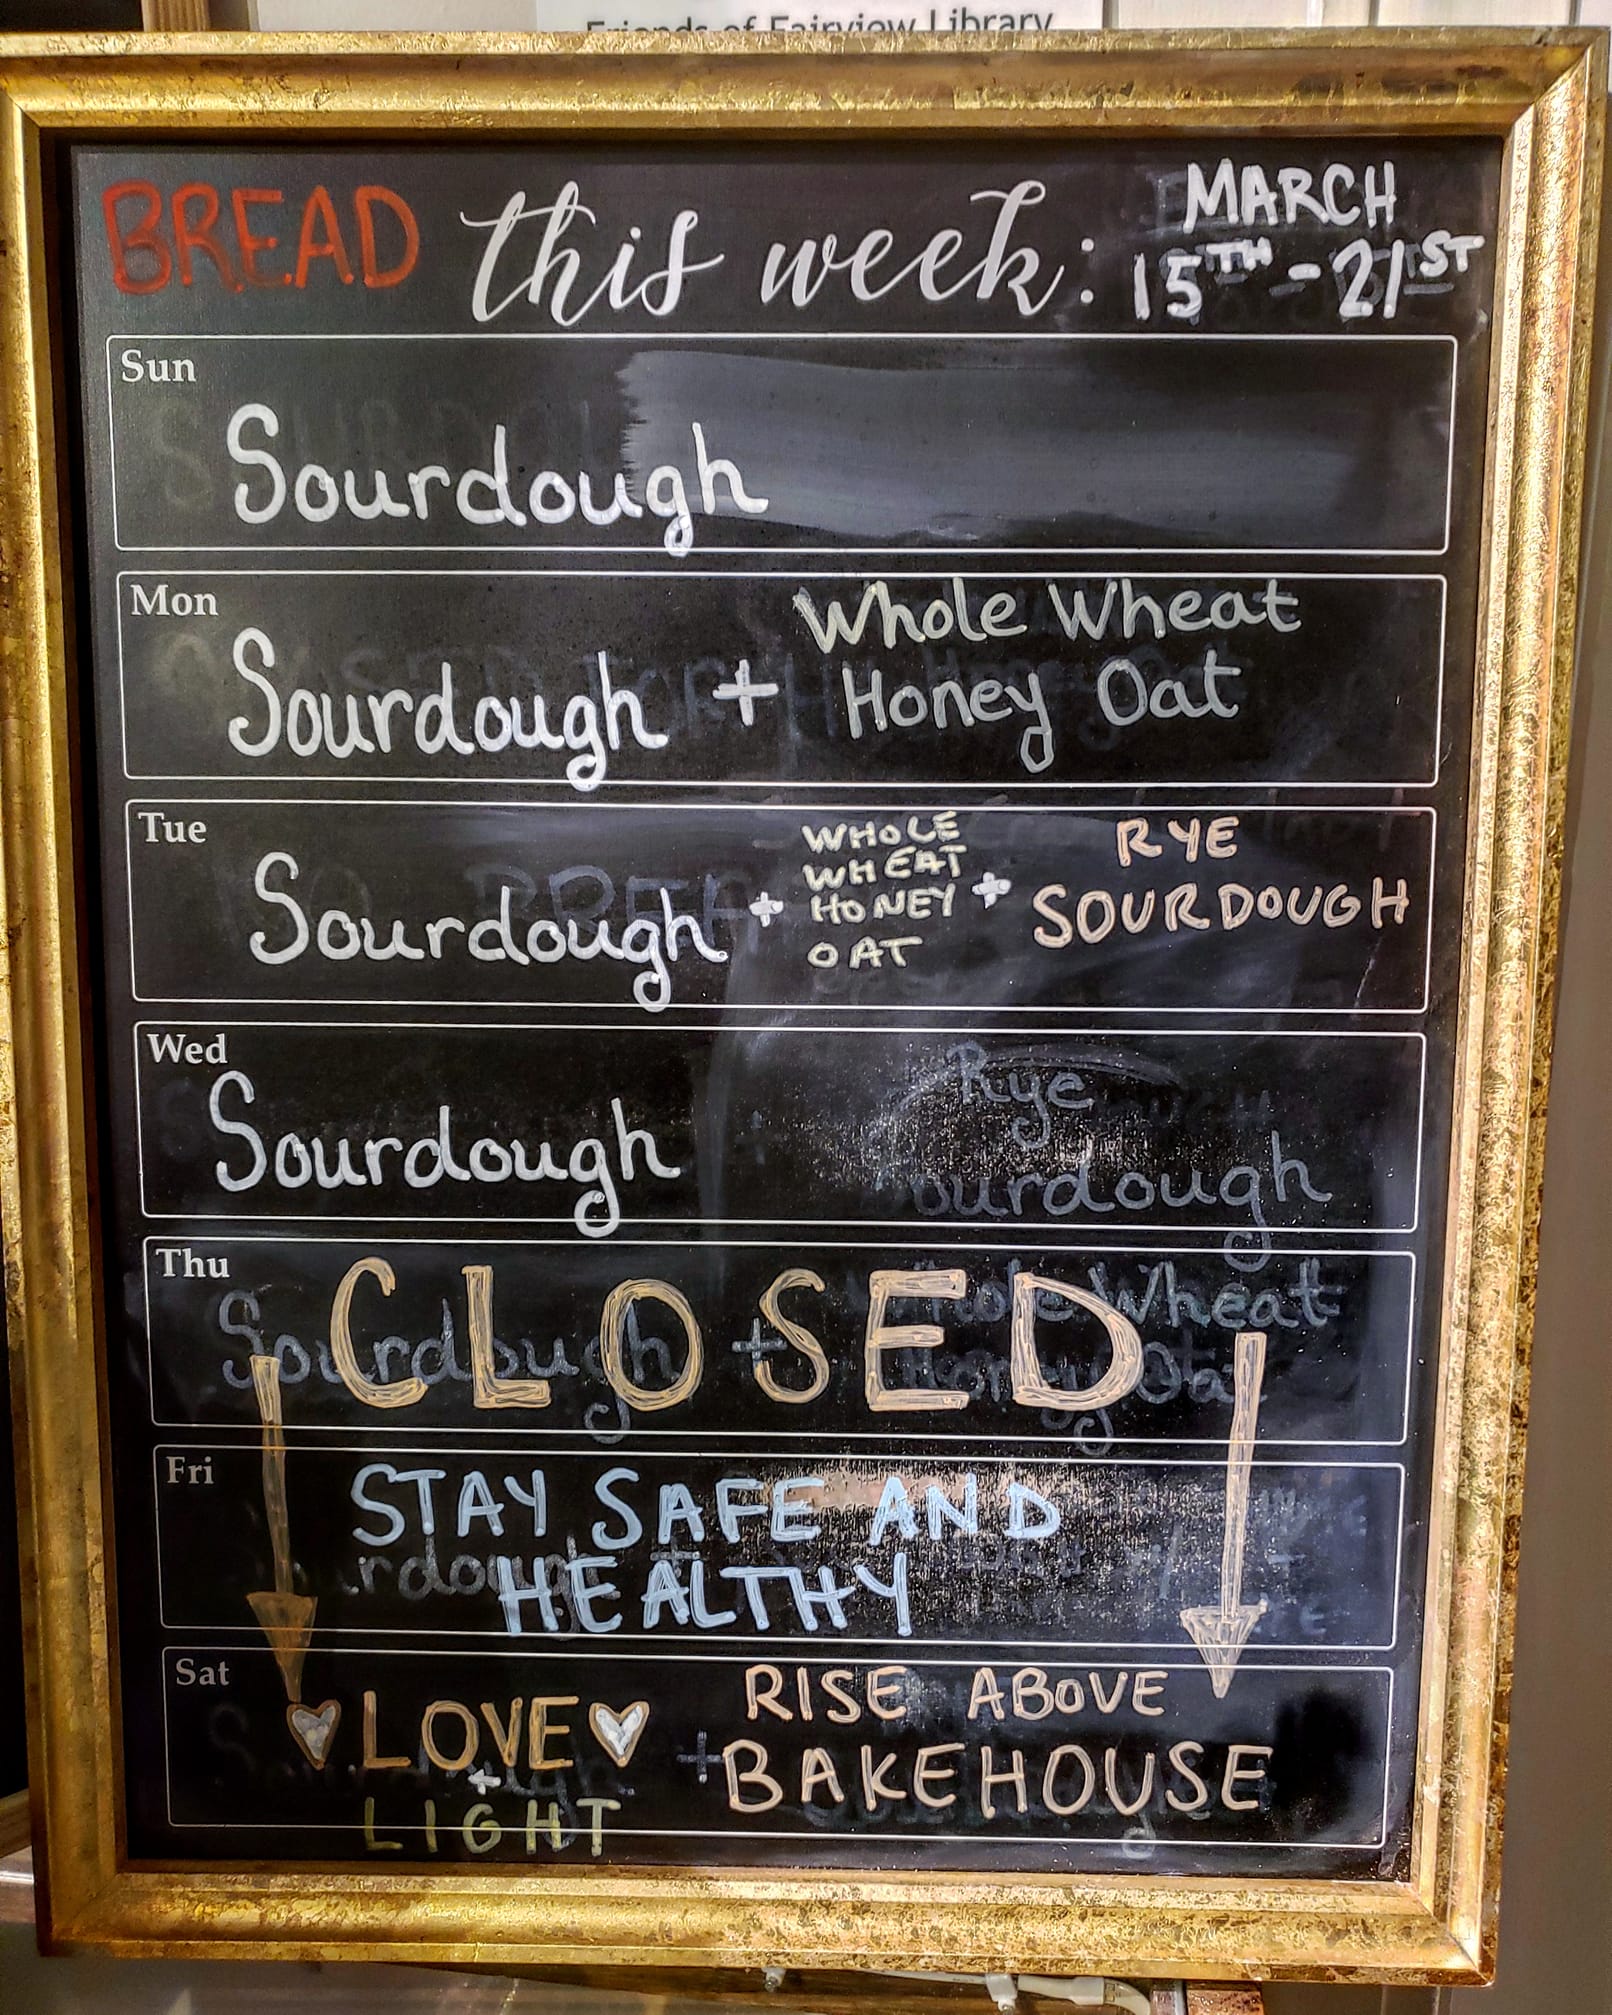 Friends of Fairview Library
BREAD this week: MARCH
15TH - 21ST
Sun
Sourdough
Mon
Sourdough + Whole Wheat
Honey Oat
Tue
Sourdough + WHOLE
WHEAT
HONEY
OAT + RYE
SOURDOUGH
Wed
Sourdough
Rye
ourdough
Thu
CLOSED
Sourdough + Whole Wheat
Honey Oat
Fri
STAY SAFE AND
HEALTHY
Sat
LOVE
+
LIGHT
+ RISE ABOVE
BAKEHOUSE